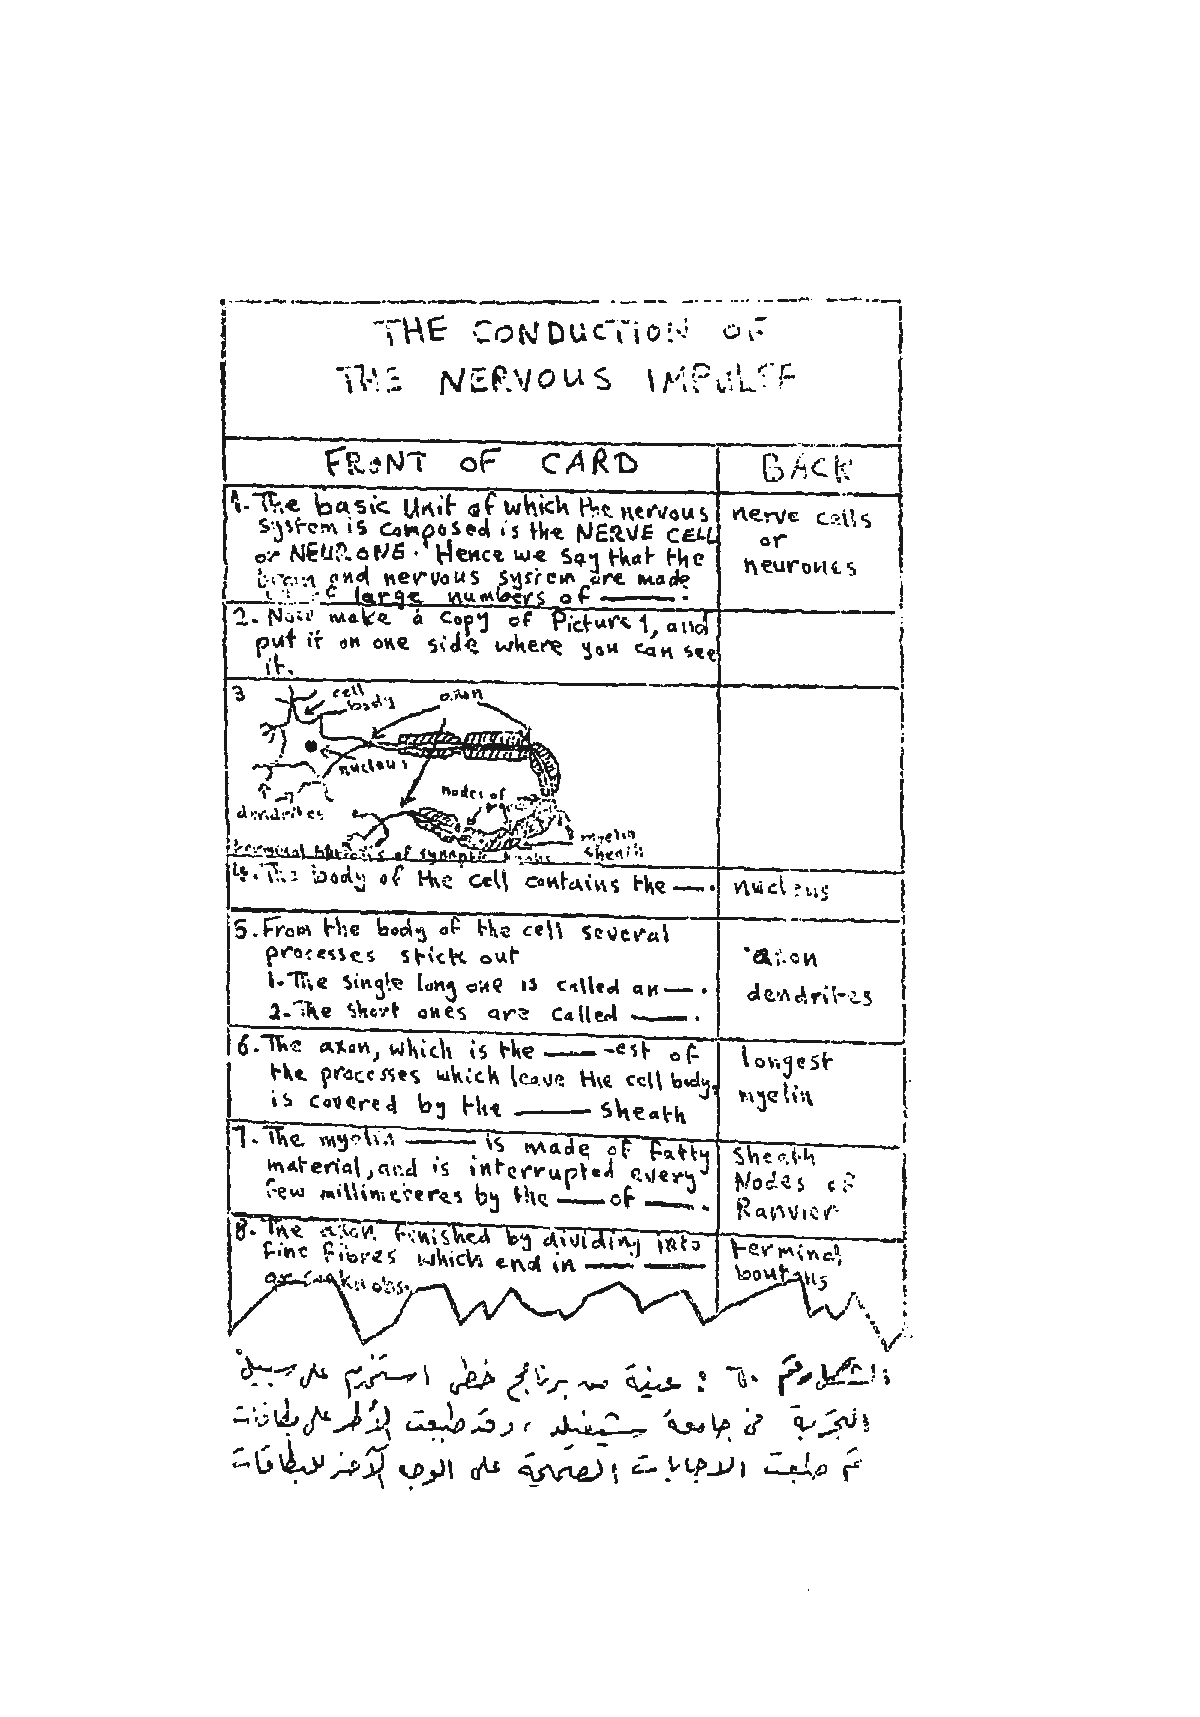 THE CONDUCTION OF
THE NERVOUS IMPULSE
FRONT OF CARD
BACK
1. The basic Unit of which the nervous
system is composed is the NERVE CELL
or NEURONE. Hence we say that the
brain and nervous system are made
large numbers of ——.
nerve cells
or
neurones
2. Now make a copy of Picture 1, and
put it on one side where you can see
it.
3
cell
body
axon
nucleus
nodes of
dendrites
myelin
sheath
terminal of synaptic
4. The body of the cell contains the —.
nucleus
5. From the body of the cell several
processes stick out
1. The single long one is called an —.
2. The short ones are called ——.
axon
dendrites
6. The axon, which is the —— -est of
the processes which leave the cell body,
is covered by the —— sheath
longest
myelin
7. The myelin —— is made of fatty
material, and is interrupted every
few millimeteres by the —— of ——.
sheath
Nodes of
Ranvier
8. The axon finished by dividing into
fine fibres which end in —— ——
or knobs.
terminal
boutons
الشكل رقم ٦٠ : عينة من برنامج خطي استخدم على سبيل
التجربة في جامعة شيفيلد ، وقد طبعت الأطر على بطاقات
ثم طبعت الاجابات الصحيحة على الوجه الآخر للبطاقات